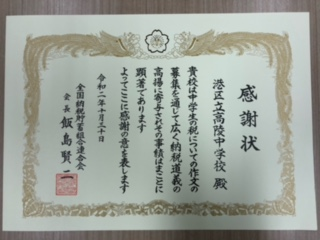 感謝状
港区立高陵中学校 殿
貴校は中学生の税についての作文の
募集を通じて広く納税道義の
高揚に寄与されその事績はまことに
顕著であります
よってここに感謝の意を表します
令和二年十月三十日
全国納税貯蓄組合連合会
会長 飯島賢二